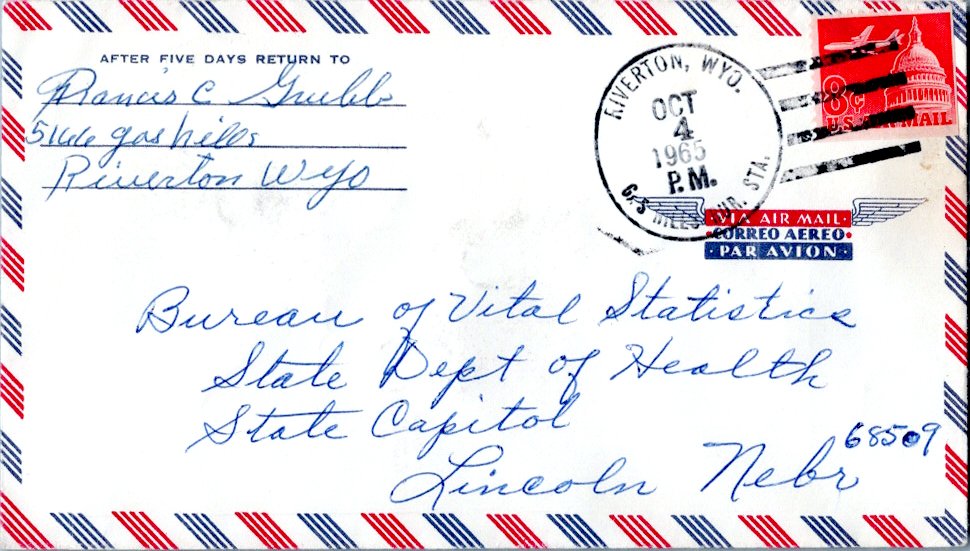 AFTER FIVE DAYS RETURN TO
Francis C Grubb
gas hills
Riverton Wyo
RIVERTON, WYO.
OCT
4
1965
P.M.
GAS HILLS RUR. STA.
8¢
U.S. AIR MAIL
VIA AIR MAIL
CORREO AEREO
PAR AVION
Bureau of Vital Statistics
State Dept of Health
State Capitol
Lincoln Nebr 68509